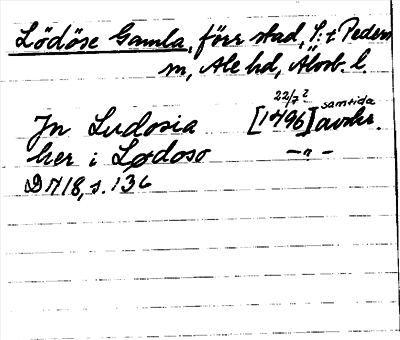 Lödöse Gamla, förr stad, S:t Peders
sn, Ale hd, Älvsb. l.
22/7 ? samtida
In Ludosia [1496] avskr.
her i Lødoso —"—
DN 18, s. 136